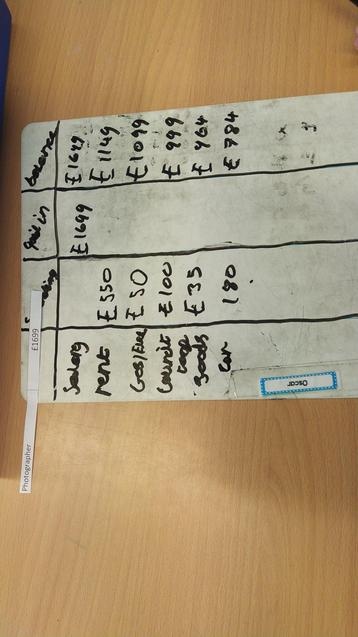 Photographer £1699
Paid in balance
Salary £1699 £1699
rent £550 £1149
Gas/Elec £50 £1099
£100 £999
goods £35 £964
car 180 £784
Oscar